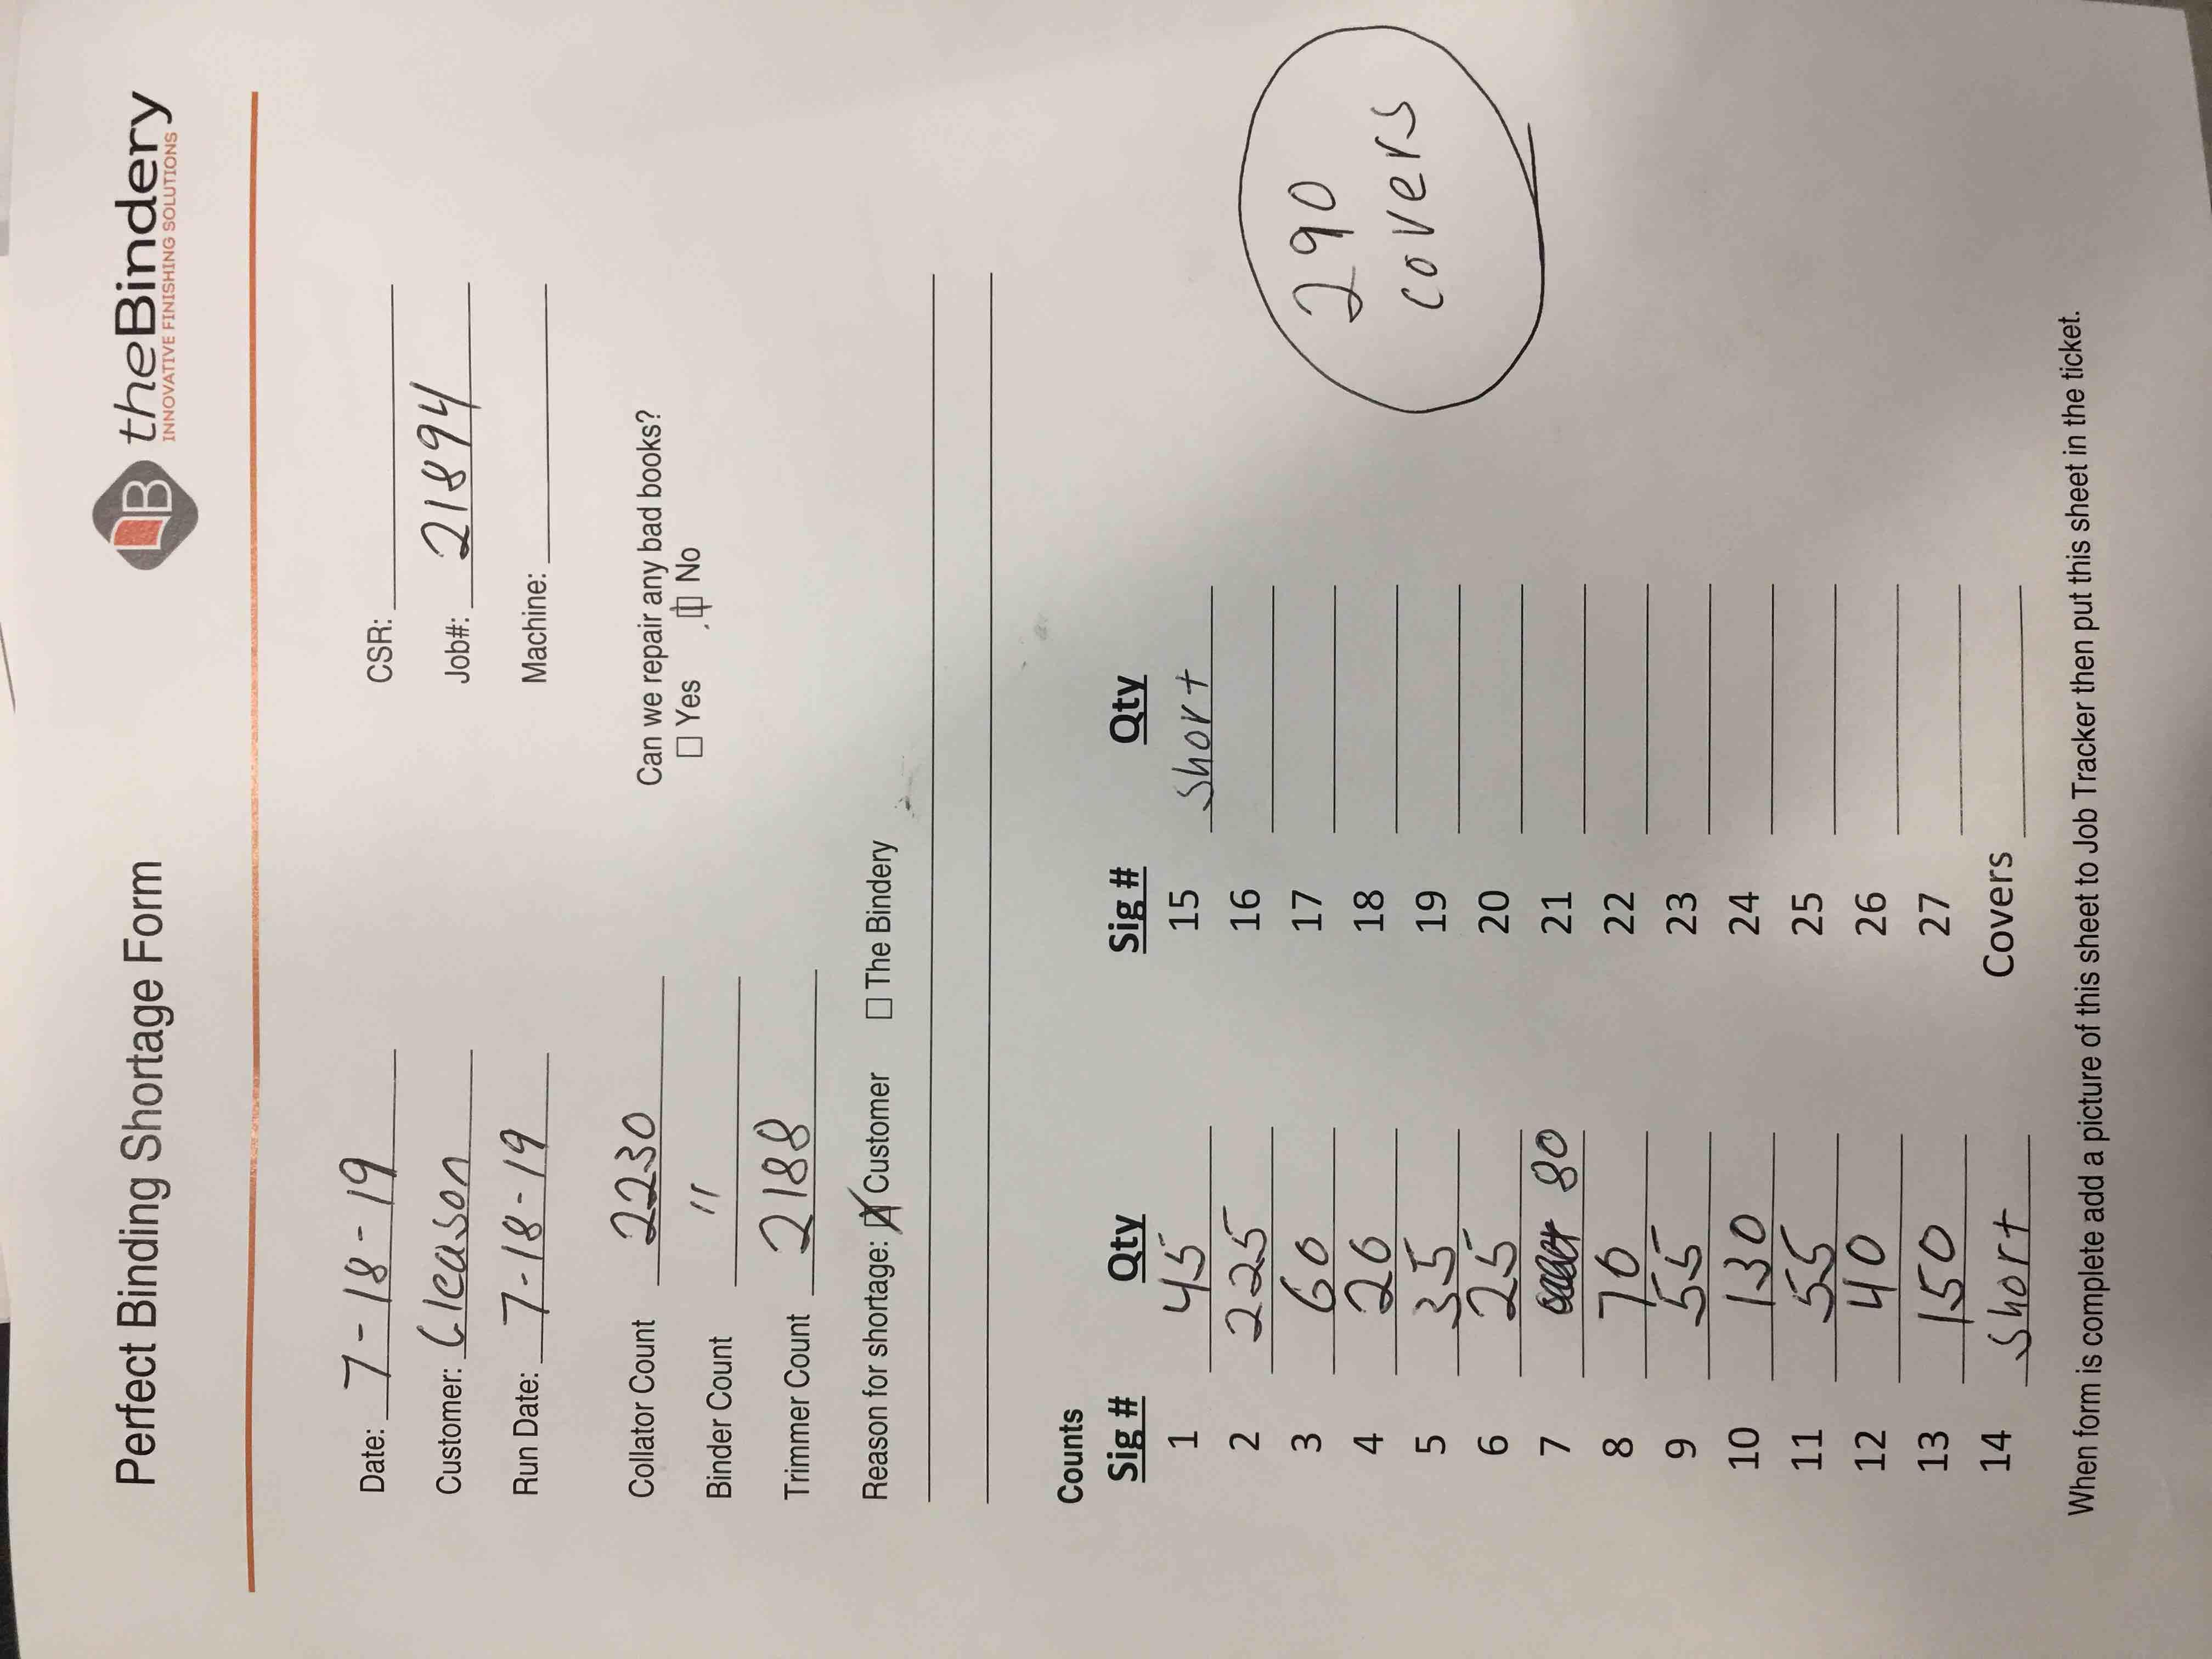 Perfect Binding Shortage Form
B theBindery
INNOVATIVE FINISHING SOLUTIONS
Date: 7-18-19 CSR:
Customer: Gleason Job#: 21894
Run Date: 7-18-19 Machine:
Collator Count 2230 Can we repair any bad books?
☐ Yes ☐ No
Binder Count "
Trimmer Count 2188
Reason for shortage: ☒ Customer ☐ The Bindery
Counts
Sig # Qty Sig # Qty
1 45 15 short
2 225 16
3 60 17
4 20 18
5 35 19
6 25 20
7 80 21
8 70 22
9 55 23
10 130 24
11 55 25
12 40 26
13 150 27
14 short Covers
290
covers
When form is complete add a picture of this sheet to Job Tracker then put this sheet in the ticket.